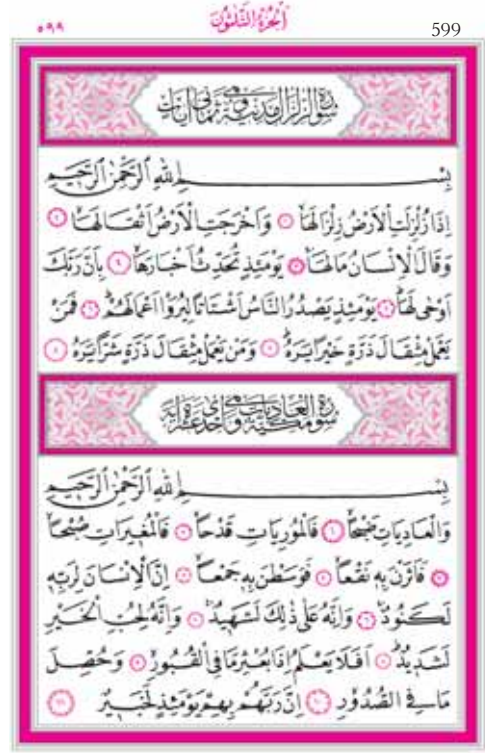 599 اَلْجُزْءُ الثَّلٰثُونَ ٥٩٩
سُورَةُ الزِّلْزَالِ مَدَنِيَّةٌ وَهِيَ ثَمَانِي اٰيَاتٍ
بِسْمِ اللّٰهِ الرَّحْمٰنِ الرَّحِيمِ
اِذَا زُلْزِلَتِ الْاَرْضُ زِلْزَالَهَاۙ ١ وَاَخْرَجَتِ الْاَرْضُ اَثْقَالَهَاۙ ٢
وَقَالَ الْاِنْسَانُ مَالَهَاۚ ٣ يَوْمَئِذٍ تُحَدِّثُ اَخْبَارَهَاۙ ٤ بِاَنَّ رَبَّكَ
اَوْحٰى لَهَاۜ ٥ يَوْمَئِذٍ يَصْدُرُ النَّاسُ اَشْتَاتًا لِيُرَوْا اَعْمَالَهُمْۜ ٦ فَمَنْ
يَعْمَلْ مِثْقَالَ ذَرَّةٍ خَيْرًا يَرَهُۜ ٧ وَمَنْ يَعْمَلْ مِثْقَالَ ذَرَّةٍ شَرًّا يَرَهُ ٨
سُورَةُ الْعَادِيَاتِ مَكِّيَّةٌ وَهِيَ اِحْدٰى عَشْرَةَ اٰيَةً
بِسْمِ اللّٰهِ الرَّحْمٰنِ الرَّحِيمِ
وَالْعَادِيَاتِ ضَبْحًاۙ ١ فَالْمُورِيَاتِ قَدْحًاۙ ٢ فَالْمُغِيرَاتِ صُبْحًاۙ
٣ فَاَثَرْنَ بِهِ نَقْعًاۙ ٤ فَوَسَطْنَ بِهِ جَمْعًاۙ ٥ اِنَّ الْاِنْسَانَ لِرَبِّهِ
لَكَنُودٌۚ ٦ وَاِنَّهُ عَلٰى ذٰلِكَ لَشَهِيدٌۚ ٧ وَاِنَّهُ لِحُبِّ الْخَيْرِ
لَشَدِيدٌۜ ٨ اَفَلَا يَعْلَمُ اِذَا بُعْثِرَ مَا فِي الْقُبُورِۙ ٩ وَحُصِّلَ
مَا فِي الصُّدُورِۙ ١٠ اِنَّ رَبَّهُمْ بِهِمْ يَوْمَئِذٍ لَخَبِيرٌ ١١